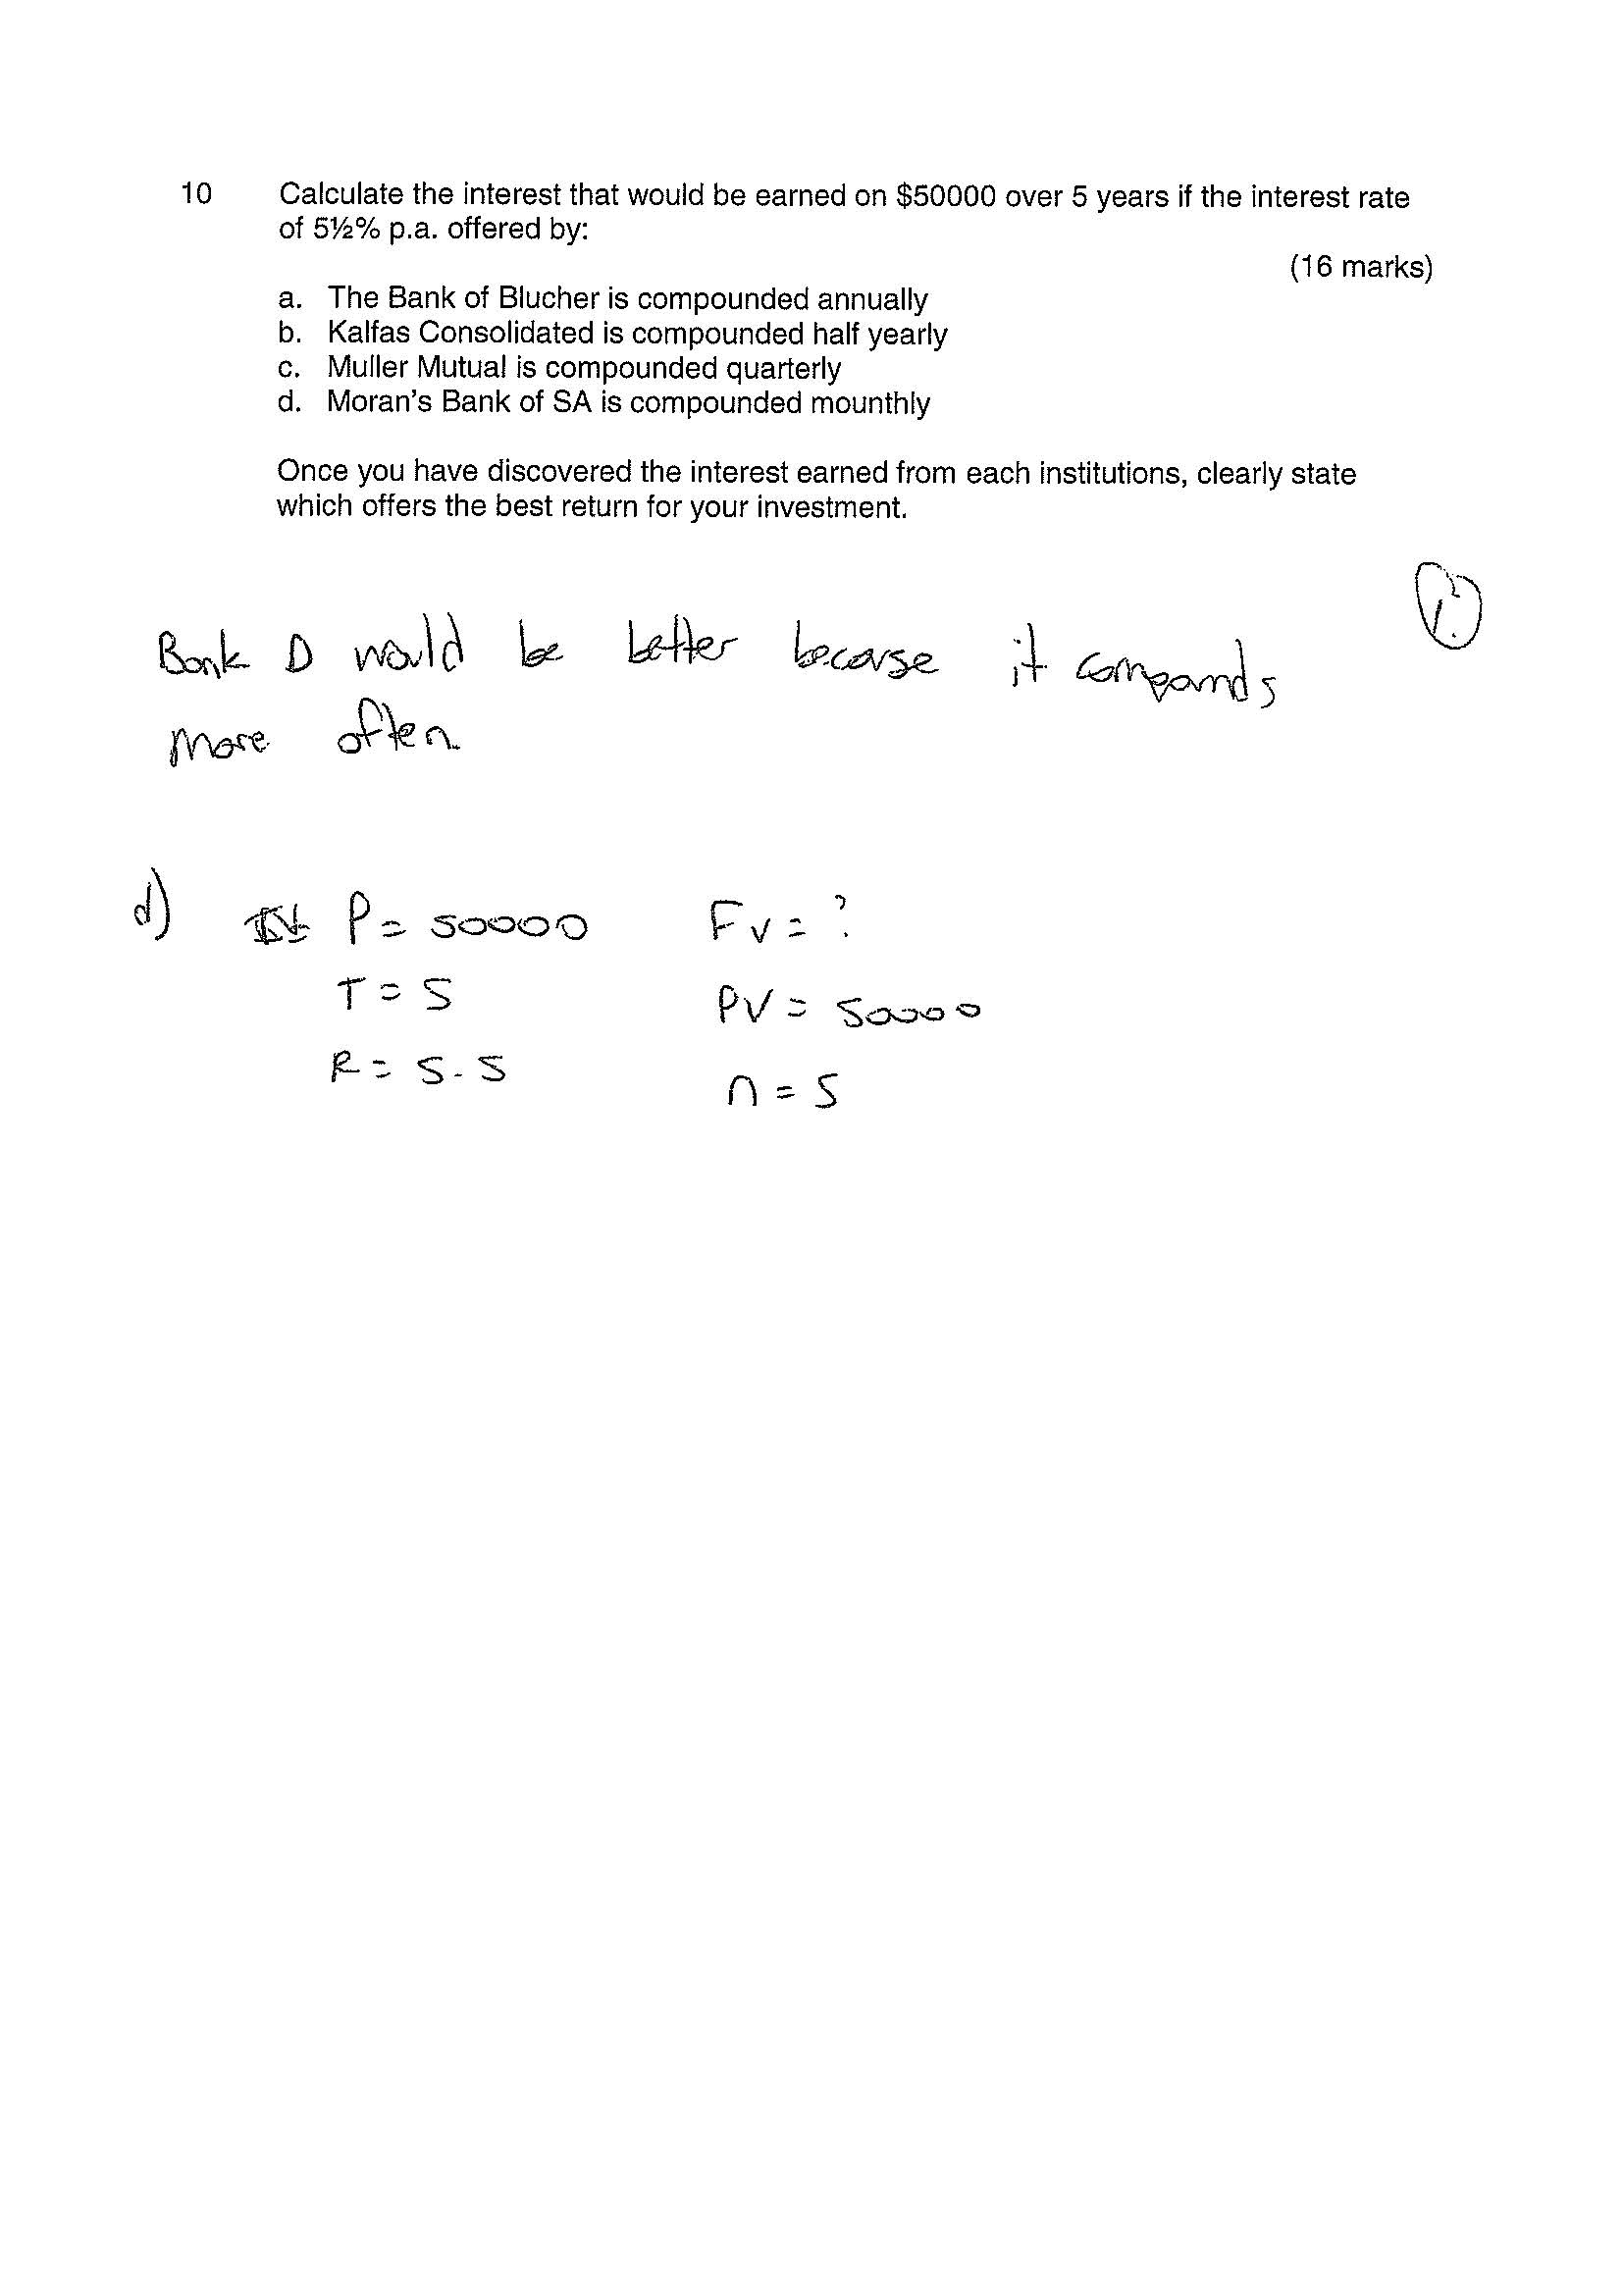 10 Calculate the interest that would be earned on $50000 over 5 years if the interest rate
of 5½% p.a. offered by:
(16 marks)
a. The Bank of Blucher is compounded annually
b. Kalfas Consolidated is compounded half yearly
c. Muller Mutual is compounded quarterly
d. Moran's Bank of SA is compounded mounthly
Once you have discovered the interest earned from each institutions, clearly state
which offers the best return for your investment.
Bank D would be better because it compounds
more often
d) P = 50000 FV = ?
T = 5 PV = 50000
R = 5.5 n = 5